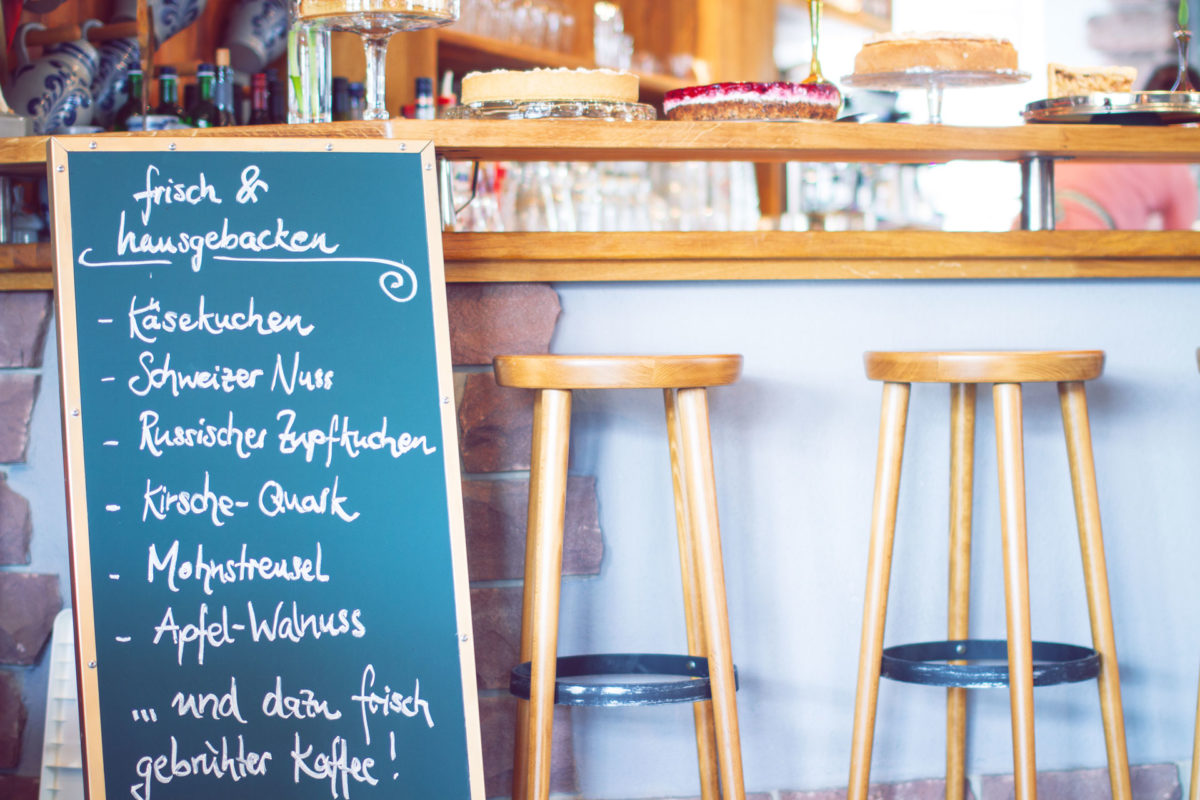 frisch &
hausgebacken
- Käsekuchen
- Schweizer Nuss
- Russischer Zupfkuchen
- Kirsche-Quark
- Mohnstreusel
- Apfel-Walnuss
... und dazu frisch
gebrühter Kaffee!